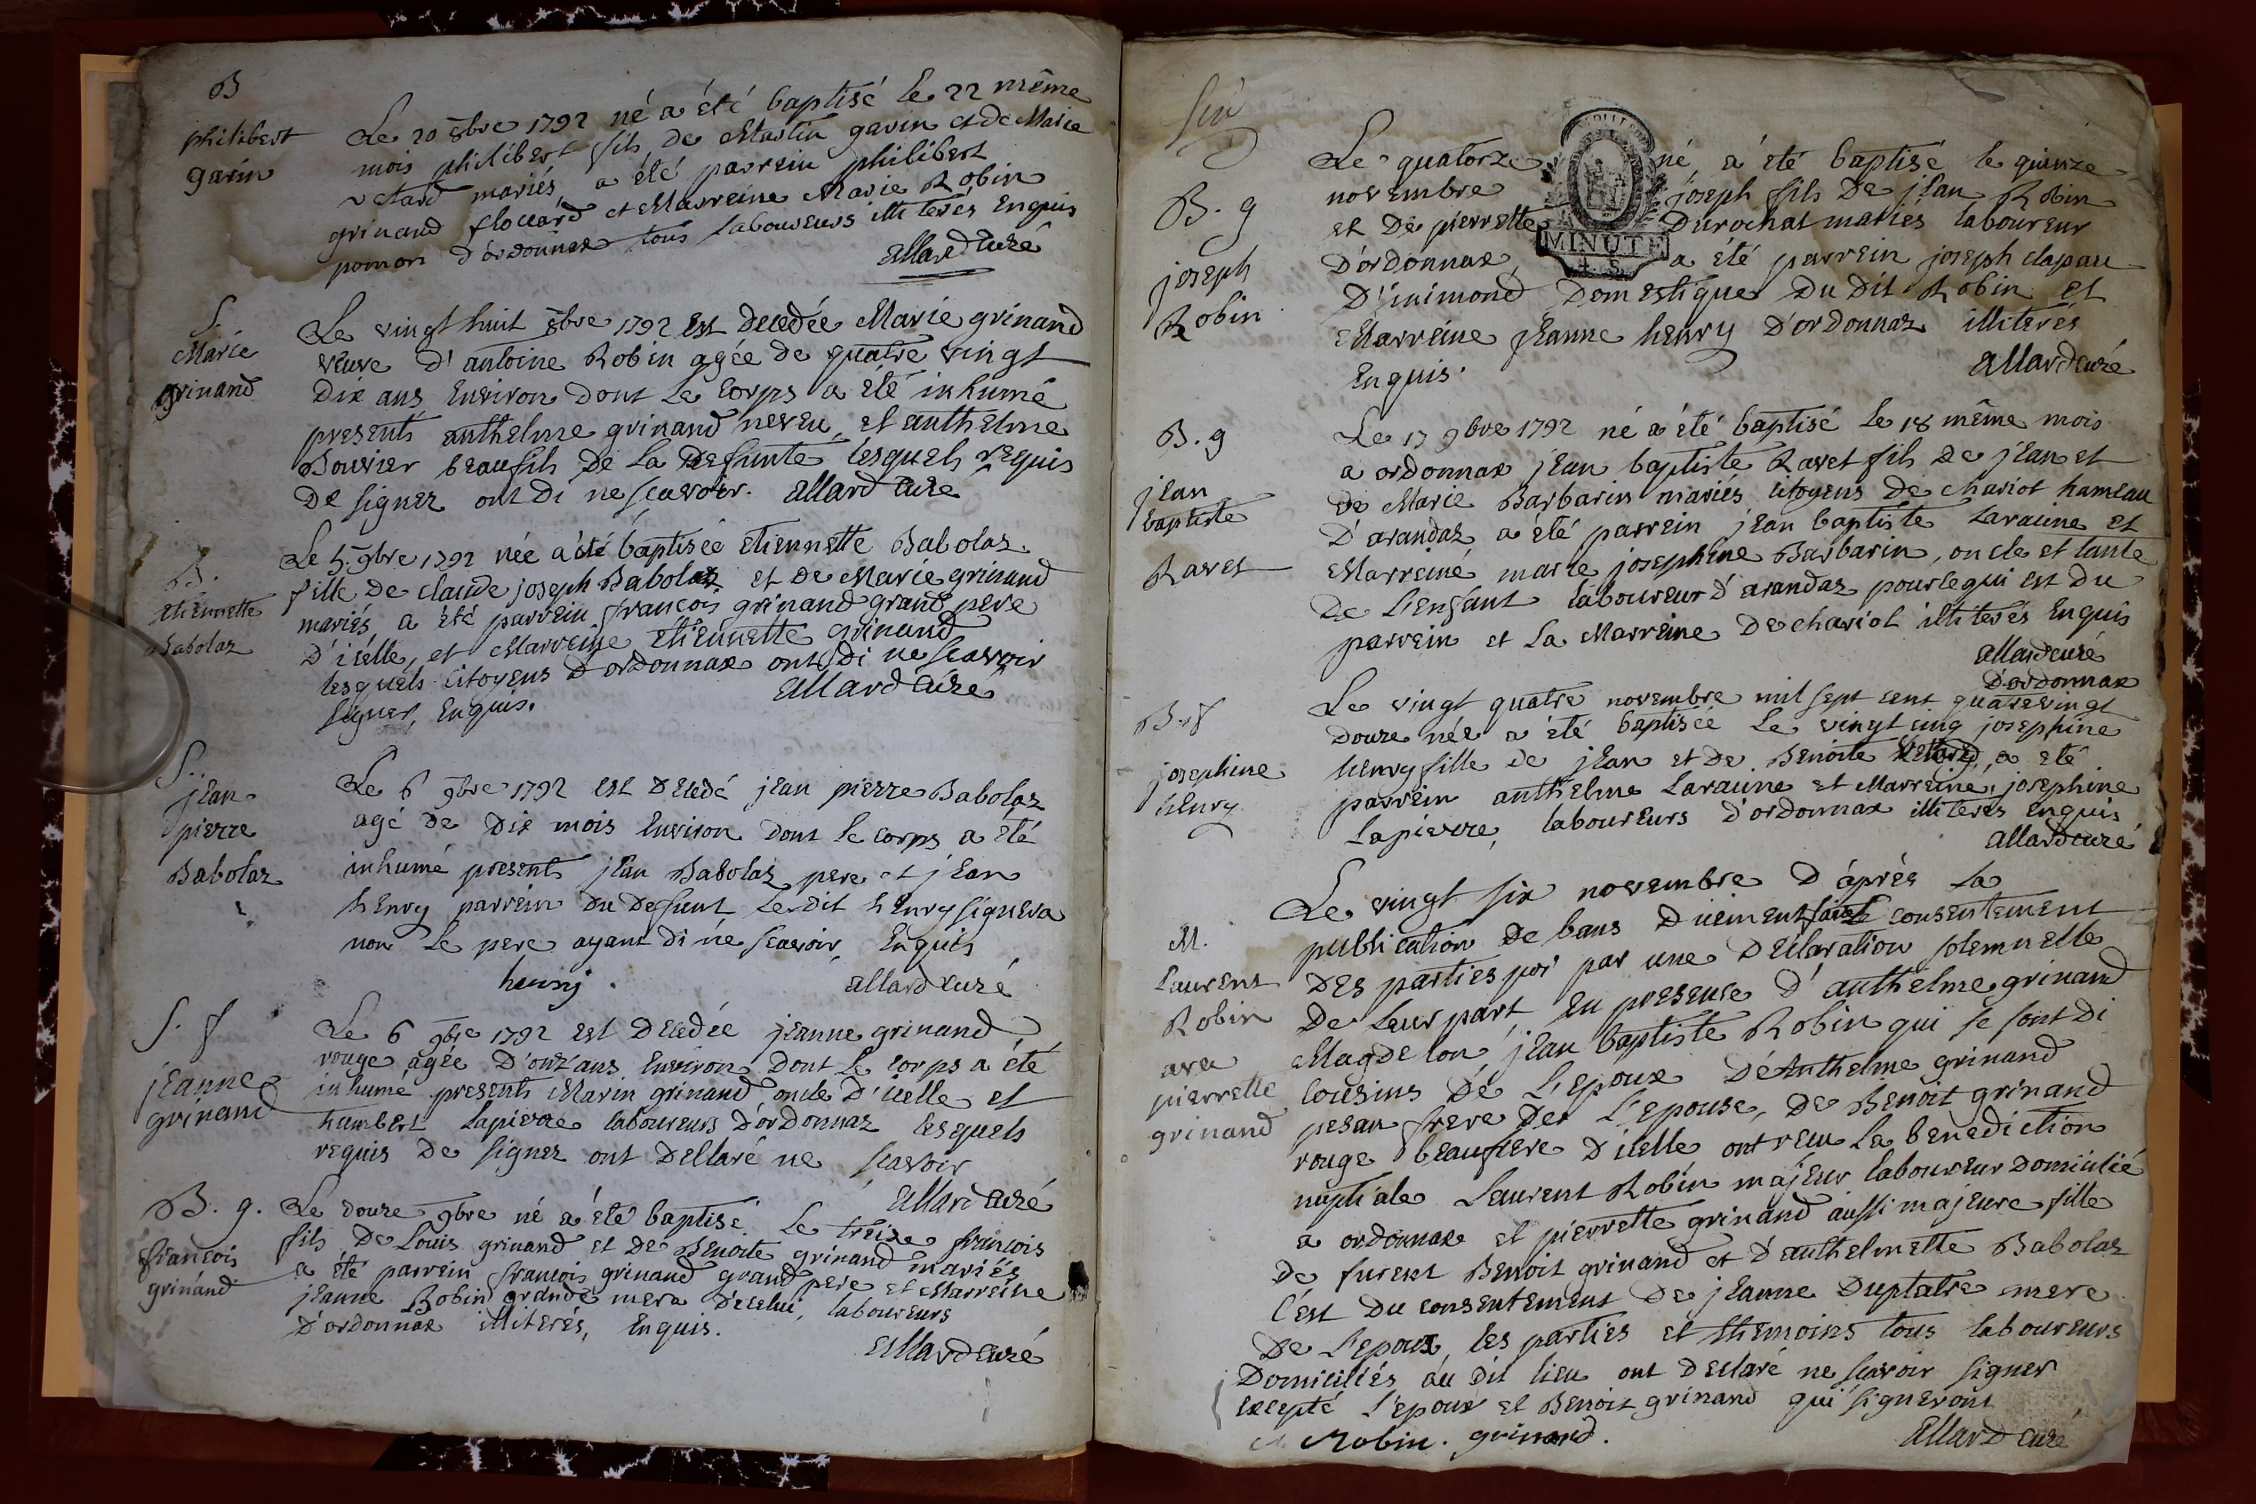 B
philibert
garin
Le 20 8bre 1792 né a été baptisé le 22 même
mois philibert fils de Martin garin et de Marie
vetard mariés, a été parrein philibert
grinand floccard et Marreine Marie Robin
tous laboureurs illiterés Enquis
allard curé
S.
Marie
grinand
Le vingt huit 8bre 1792 est decedée Marie grinand
veuve d'antoine Robin agée de quatre vingt
dix ans Environ dont le corps a été inhumé
presents anthelme grinand neveu, et anthelme
Bouvier beaufils de la defunte lesquels requis
de signer ont di ne scavoir. allard curé
B.
etiennette
Babolaz
Le 5. 9bre 1792 née a été baptisée etiennette Babolaz
fille de claude joseph Babolaz et de Marie grinand
mariés a été parrein francois grinand grand pere
d'icelle, et Marreine etiennette grinand
lesquels citoyens d'ordonnax ont di ne scavoir
signer, Enquis.
allard curé
S.
jean
pierre
Babolaz
Le 6 9bre 1792 est decedé jean pierre Babolaz
agé de dix mois Environ dont le corps a été
inhumé presents jean Babolaz pere et jean
henry parrein du defunt le dit henry signera
non le pere ayant di ne scavoir, Enquis
henry . allard curé
S. f
jeanne
grinand
Le 6 9bre 1792 est decedée jeanne grinand
rouge agée d'onz'ans Environ dont le corps a été
inhumé presents Marin grinand, oncle d'icelle et
humbert Lapierre laboureurs d'ordonnaz lesquels
requis de signer ont dellaré ne scavoir
allard curé
B. g.
francois
grinand
Le douze 9bre né a été baptisé le treize francois
fils de Louis grinand et de Benoite grinand mariés
a été parrein francois grinand grand pere et Marreine
jeanne Robin grande mere d'icelui, laboureurs
d'ordonnax illiterés, Enquis.
allard curé
B. g
joseph
Robin
MINUTE
4. S.
Le quatorze né, a été baptisé le quinze
novembre joseph fils de jean Robin
et de pierrette Durochat mariés laboureur
d'ordonnax, a été parrein joseph clapau
d'inimond domestique du dit Robin et
Marreine jeanne henry d'ordonnaz illiterés
Enquis.
allard curé
B. g
jean
baptiste
Ravet
Le 17 9bre 1792 né a été baptisé le 18 même mois
a ordonnax jean baptiste Ravet fils de jean et
de Marie Barbarin mariés citoyens de chariot hameau
d'arandaz, a été parrein jean baptiste Laraine et
Marreine marie josephine Barbarin, oncle et tante
de l'enfant laboureur d'arandaz pour ce qui est du
parrein et la Marreine de chariot illiterés Enquis
allard curé
d'ordonnax
B. f
josephine
henry
Le vingt quatre novembre mil sept cent quatrevingt
douze née a été baptisée le vingt cinq josephine
henry fille de jean et de Benoite Vetard, a été
parrein anthelme Laraine et Marreine, josephine
Lapierre, laboureurs d'ordonnax illiterés Enquis
allard curé
M.
Laurent
Robin
avec
pierrette
grinand
Le vingt six novembre d'áprés la
publication de bans duement faite consentement
des parties par une declaration solemnelle
de leur part, en presence d'anthelme grinand
Magdelon, jean baptiste Robin qui se sont di
cousins de l'epoux d'Anthelme grinand
pesan frere de l'epouse, de Benoit grinand
rouge beaufrere d'icelle ont recu la benediction
nuptiale Laurent Robin majeur laboureur domicilié
a ordonnax et pierrette grinand aussi majeure fille
de furent Benoit grinand et d'anthelmette Babolaz
c'est du consentement de jeanne Duplatre mere
de l'epoux, les parties et themoins tous laboureurs
Domiciliés au dit lieu ont declaré ne scavoir signer
excepté l'epoux et Benoit grinand qui signeront
Robin. grinand. allard curé